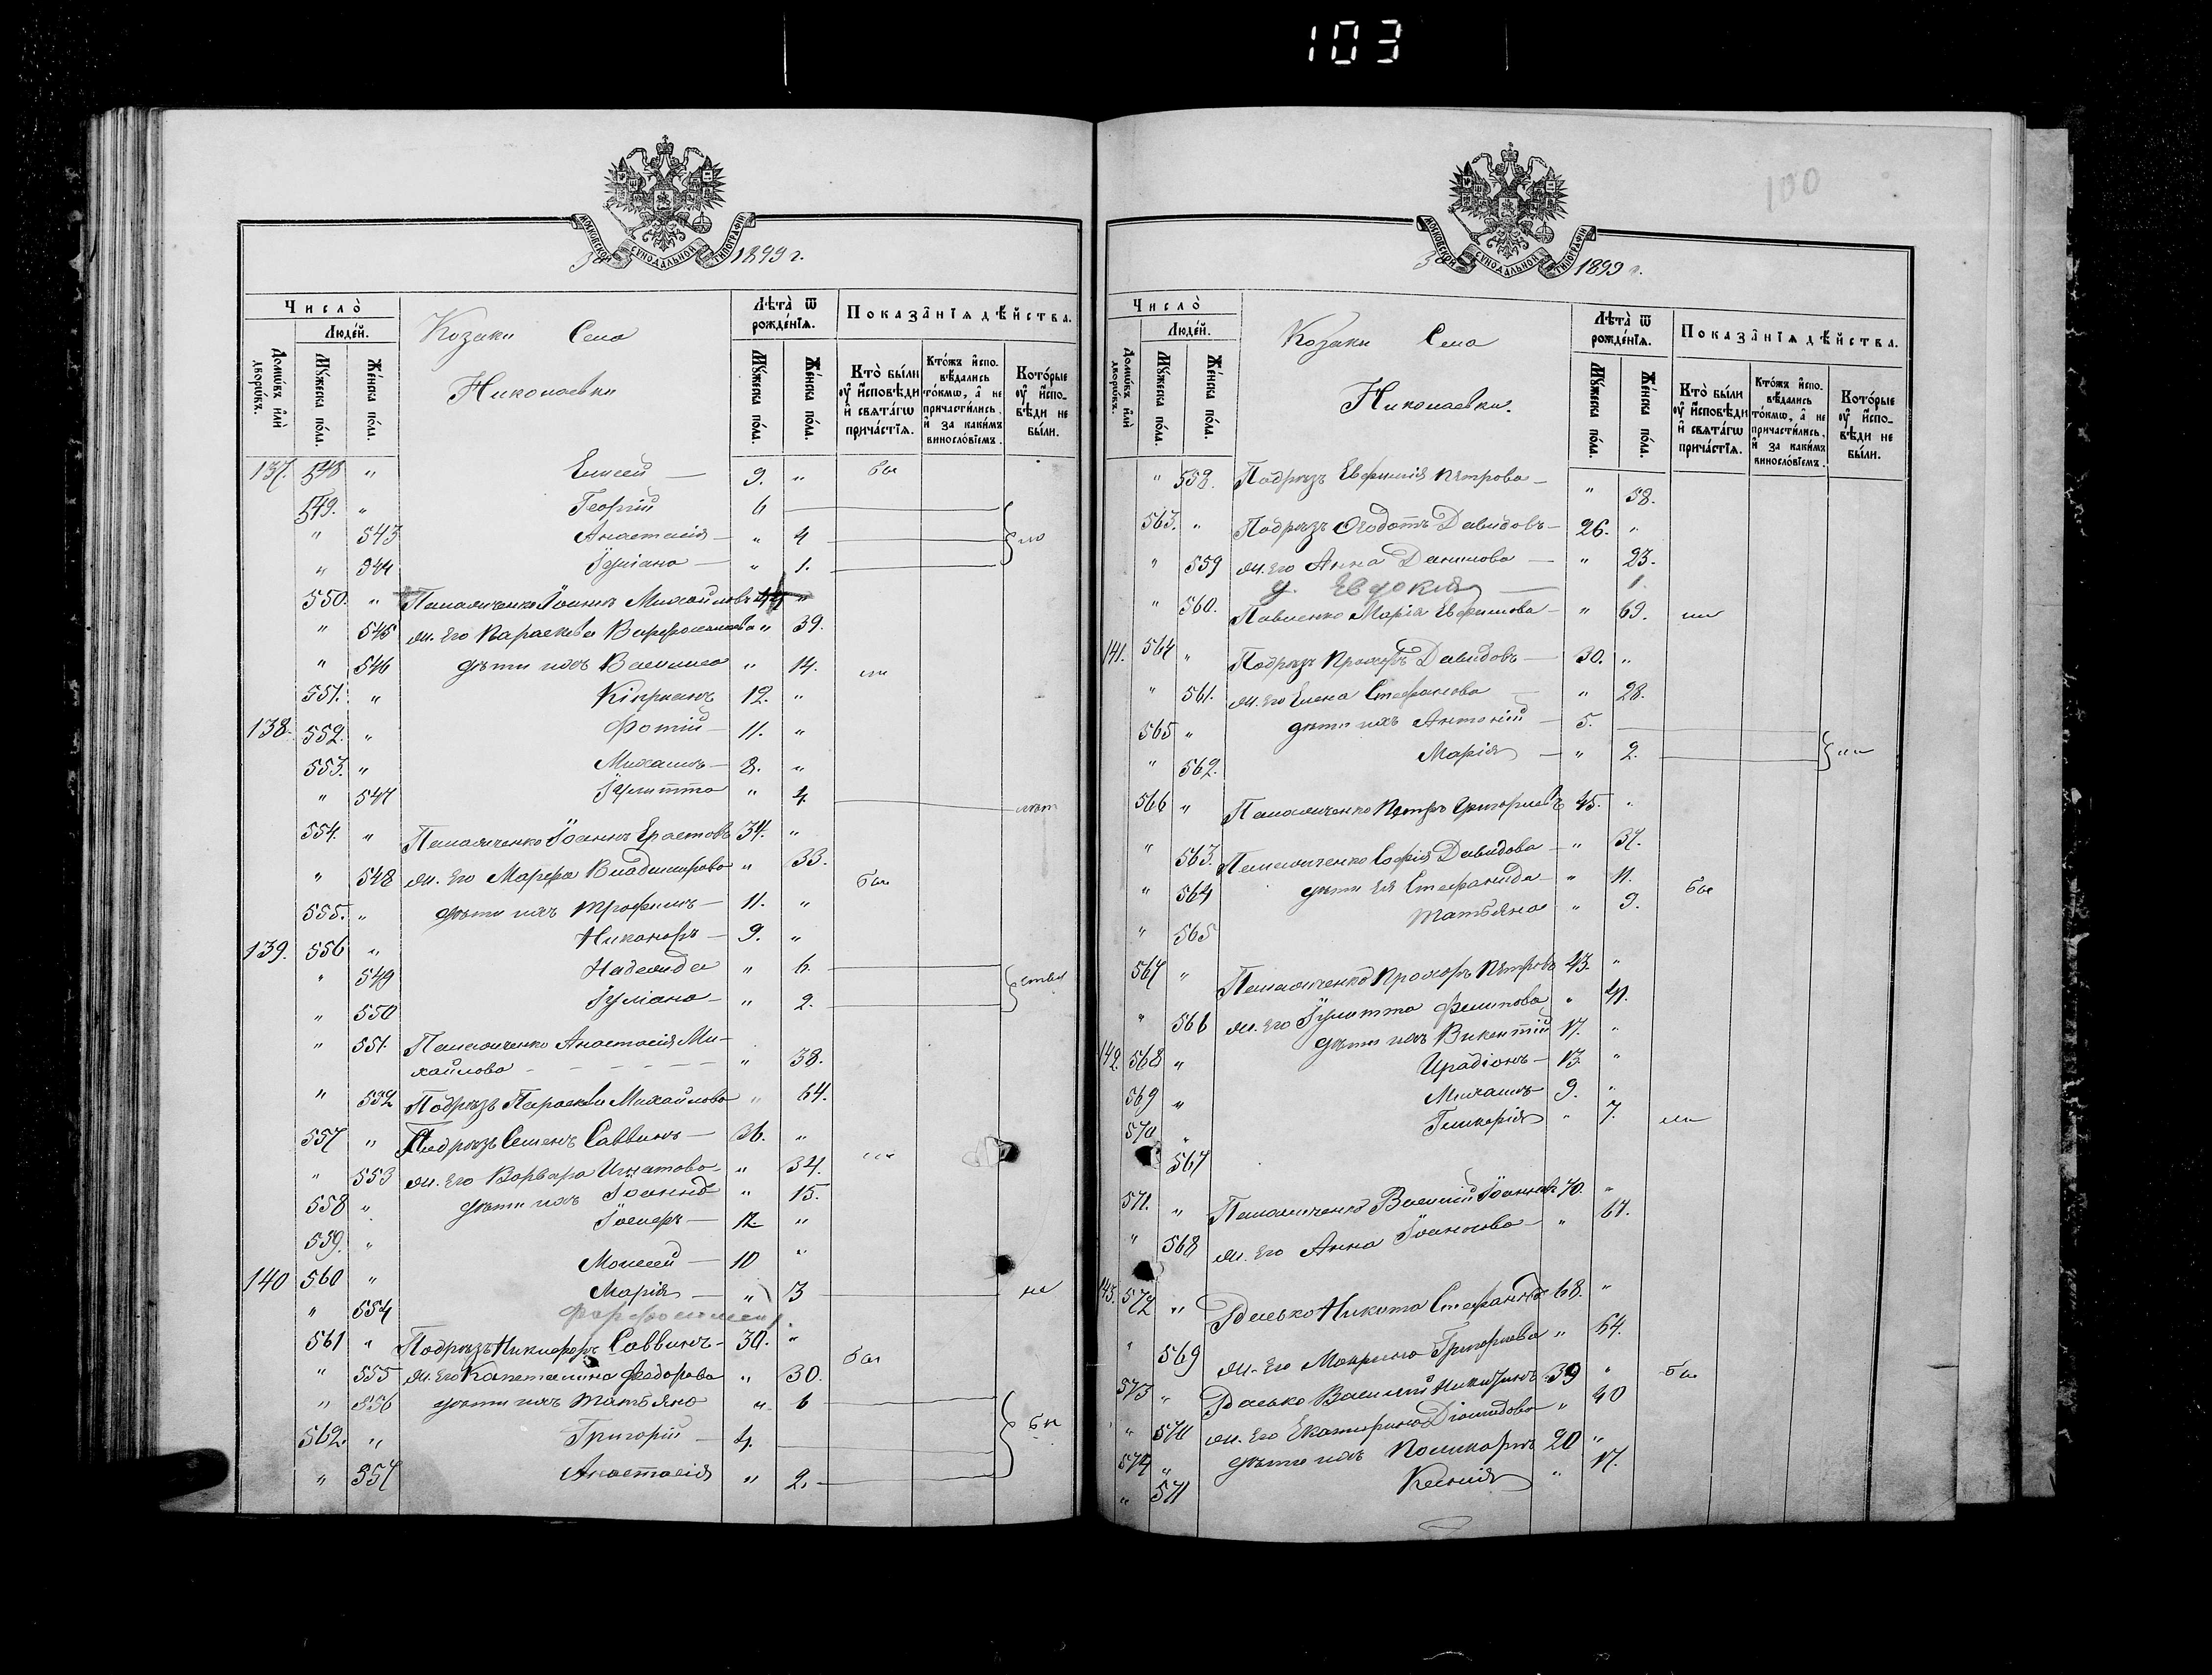 103
100
МОСКОВСКОЙ СѴНОДАЛЬНОЙ ТИПОГРАФІИ
За 1899 г.
Число̀
Люде́й.
Домѡ́въ и҆лѝ дворѡ́въ.
Мꙋ́жеска по́ла.
Же́нска по́ла.
Козаки Села
Николаевки
Лѣта̀ ѿ рожде́нїѧ.
Мꙋ́жеска по́ла.
Же́нска по́ла.
Показа̂нїѧ дѣ́йства.
Кто̀ бы́ли ᲂу҆ и҆сповѣди и҆ свѧта́гѡ прича́стїѧ.
Кто́жъ и҆споⷡ҇вѣдались то́кмѡ, а҆ не причасти́лись, и҆ за каки́мъ винослові́емъ.
Кото́рые ᲂу҆ и҆сповѣди не бы́ли.
137. 548 " Елисей — 9. " бы
549. " Георгій 6
" 543 Анастасія — " 4
" 544 Іуліана — " 1.
550. " Панасиченко Іоаннъ Михайловъ 44 "
" 545 ж. его Параскева Варфоломеева " 39.
" 546 дѣти ихъ Василиса " 14.
551. " Кипріанъ 12. "
138. 552. " Фотій — 11. "
553. " Михаилъ — 8. "
" 547 Іулитта " 4.
554. " Панасиченко Іоаннъ Ерастовъ 34. "
" 548 ж. его Марфа Владимірова " 33.
555. " дѣти ихъ Трофимъ — 11. " бы
139. 556 " Никаноръ — 9. "
" 549 Надежда " 6.
" 550 Іуліана — " 2.
" 551. Панасиченко Анастасія Ми-
хайлова — " 38.
" 552 Подрѣзъ Параскева Михайлова " 64.
557 " Подрѣзъ Семенъ Саввинъ — 36. "
" 553 ж. его Варвара Игнатова " 34.
558 " дѣти ихъ Іоаннъ " 15.
559. " Іосифъ — 12 "
Моисей — 10 "
140 560 " Марія — " 3 не
" 554
561 " Подрѣзъ Никифоръ Саввинъ — 30. "
" 555 ж. его Капетолина Ѳеодорова " 30. бы
" 556 дѣти ихъ Татьяна " 6
562. " Григорій — 4.
" 557 Анастасія " 2.
МОСКОВСКОЙ СѴНОДАЛЬНОЙ ТИПОГРАФІИ
За 1899 г.
Число̀
Люде́й.
Домѡ́въ и҆лѝ дворѡ́въ.
Мꙋ́жеска по́ла.
Же́нска по́ла.
Козаки Села
Николаевки.
Лѣта̀ ѿ рожде́нїѧ.
Мꙋ́жеска по́ла.
Же́нска по́ла.
Показа̂нїѧ дѣ́йства.
Кто̀ бы́ли ᲂу҆ и҆сповѣди и҆ свѧта́гѡ прича́стїѧ.
Кто́жъ и҆споⷡ҇вѣдались то́кмѡ, а҆ не причасти́лись, и҆ за каки́мъ винослові́емъ.
Кото́рые ᲂу҆ и҆сповѣди не бы́ли.
" 558. Подрѣзъ Евфимія Петрова — " 58.
563. " Подрѣзъ Ѳеодотъ Давидовъ — 26. "
" 559 ж. его Анна Данилова — " 23.
д. Евдокія — 1.
" 560. Павленко Марія Евфимова — " 69. ли
141. 564 " Подрѣзъ Прохоръ Давидовъ — 30. "
" 561. ж. его Елена Стефанова " 28.
565 " дѣти ихъ Антоній — 5.
" 562. Марія — " 2.
566 " Панасиченко Петръ Григорьевъ 45. "
" 563. Панасиченко Софія Давидова — " 37.
" 564 дѣти ея Стефанида — " 11. бы
" 565 Татьяна " 9.
567 " Панасиченко Прохоръ Петровъ 43. "
" 566 ж. его Іулитта Филипова " 41.
142 568 " дѣти ихъ Викентій 17. "
569 " Иродіонъ — 13. "
570 " Михаилъ 9. "
567 Гликерія " 7. ли
571. " Панасиченко Василій Іоанновъ 70. "
" 568 ж. его Анна Іоаннова — " 67.
143. 572 " Едаєько Никита Стефановъ 68. "
" 569 ж. его Макрина Григорьева " 64.
573 " Василій Никитинъ 39 " бы
" 570 ж. его Екатерина Діомидова " 40
574 " дѣти ихъ Поликарпъ 20 "
" 571 Ксенія " 17.